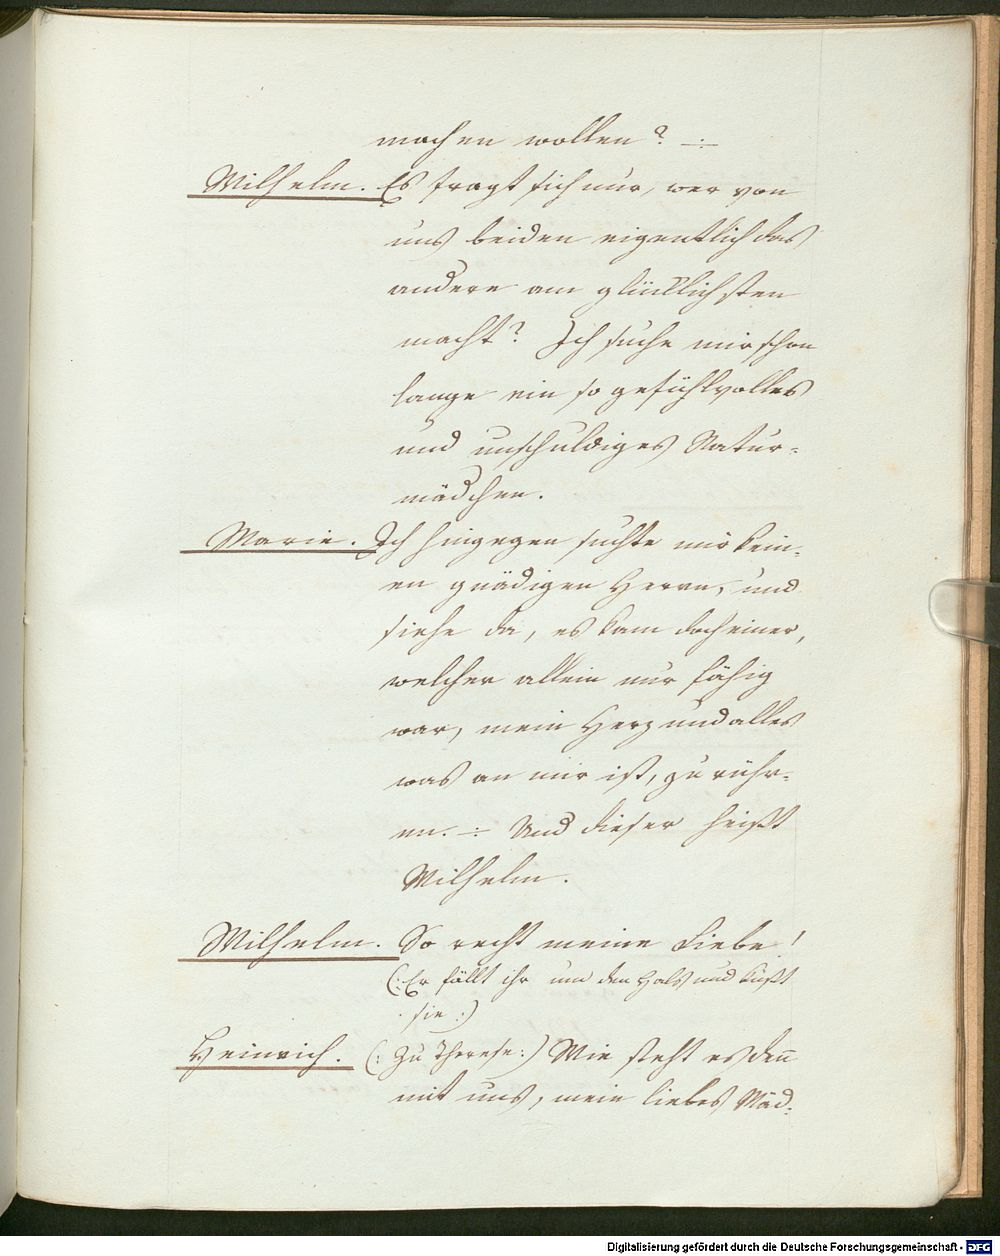 machen wollen? –:–
Wilhelm. Es fragt sich nur, wer von
uns beiden eigentlich das
andere am glücklichsten
macht? Ich suche mir schon
lange ein so gefühlvolles
und unschuldiges Natur-
mädchen.
Marie. Ich hingegen suchte mir kein-
en gnädigen Herrn, und
siehe da, es kam doch einer,
welcher allein nur fähig
war, mein Herz und alles
was an mir ist, zu rühr-
en. –:– Und dieser heißt
Wilhelm.
Wilhelm. So recht meine Liebe!
(: Er fällt ihr um den Hals und küßt
sie :)
Heinrich. (: Zu Therese :) Wie steht es den̄
mit uns, mein liebes Mäd-
Digitalisierung gefördert durch die Deutsche Forschungsgemeinschaft - DFG